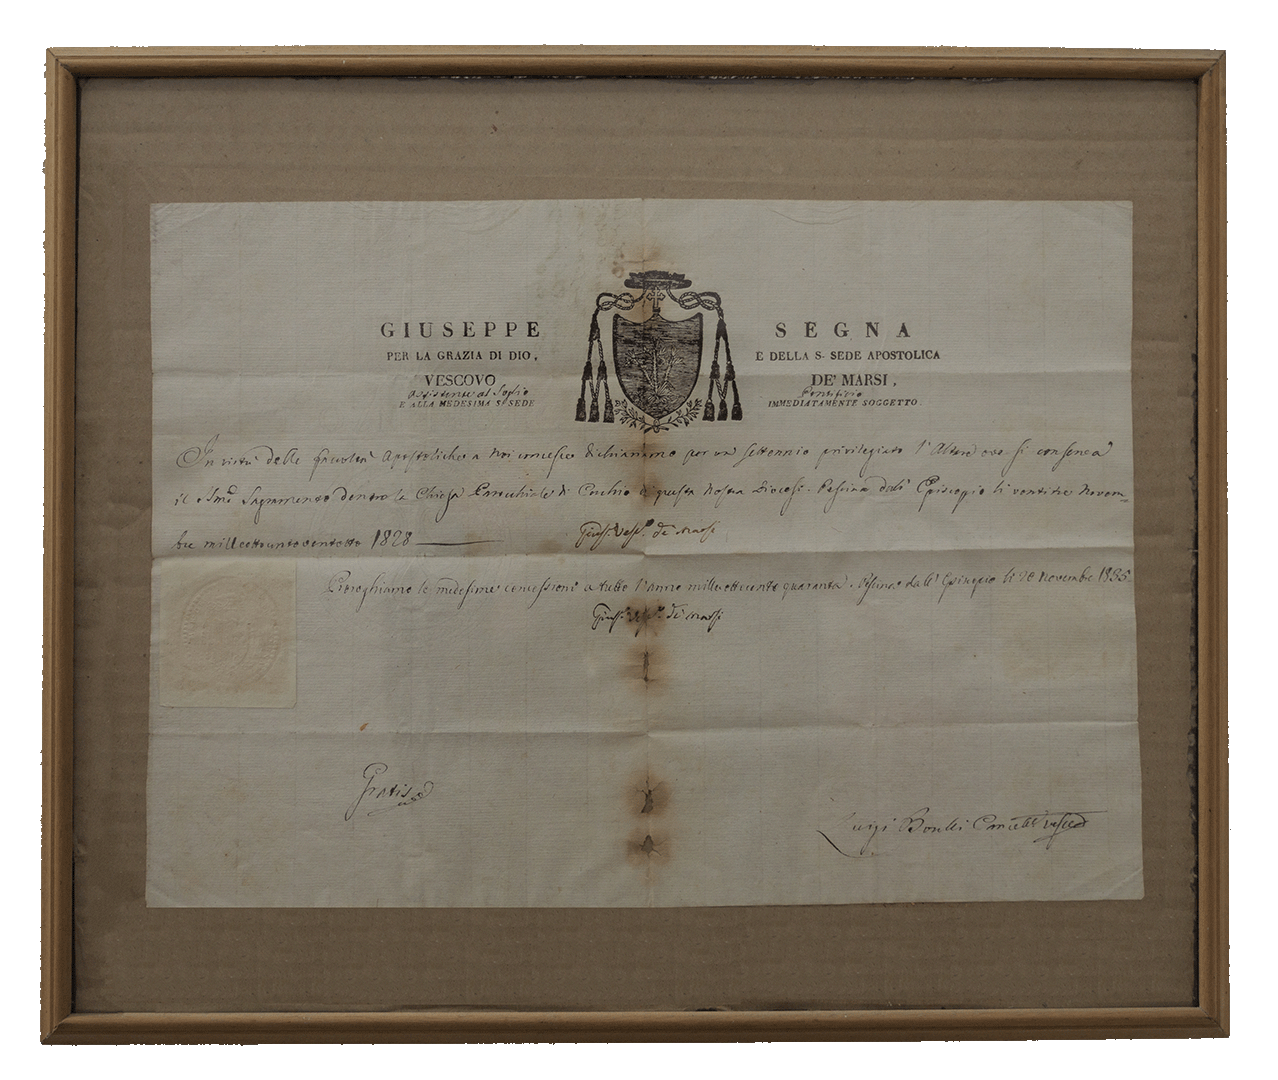 GIUSEPPE SEGNA
PER LA GRAZIA DI DIO, E DELLA S. SEDE APOSTOLICA
VESCOVO DE' MARSI,
Assistente al Soglio Pontificio
E ALLA MEDESIMA S. SEDE IMMEDIATAMENTE SOGGETTO.
In virtù delle facoltà Apostoliche a Noi concesse dichiariamo per un settennio privilegiato l'Altare ove si conserva
il SSmo Sagramento dentro la Chiesa Parochiale di Cerchio di questa Nostra Diocesi. Pescina dall' Episcopio li ventitre Novem-
bre milleottocentoventotto 1828
Gius. Vesc.o de' Marsi
Proroghiamo le medesime concessioni a tutto l'anno milleottocento quaranta. Pescina dall' Episcopio li 20 Novembre 1835
Gius. Vesc.o de' Marsi
Gratis
Luigi